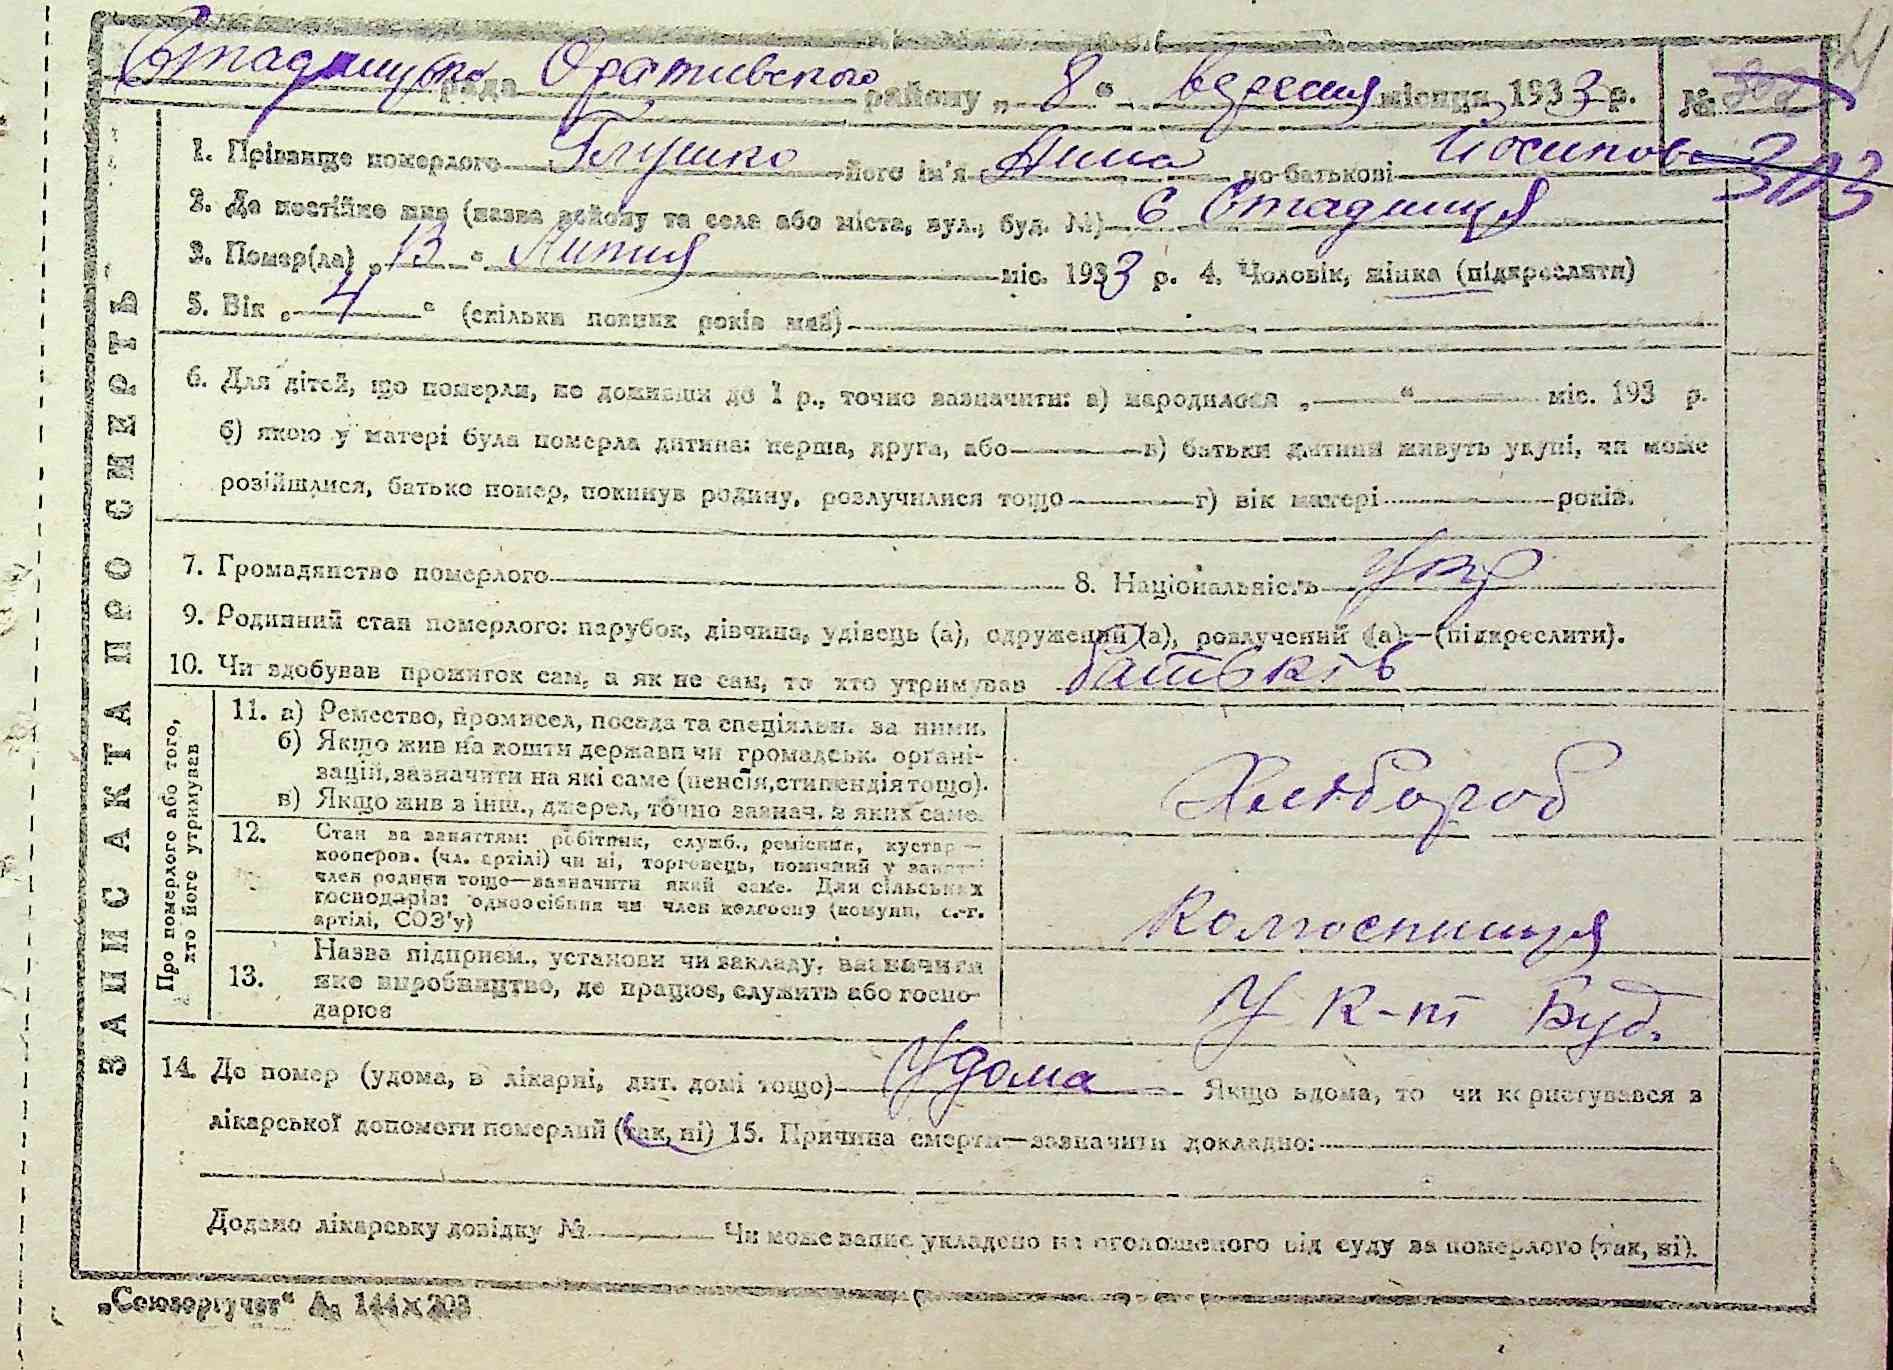 Стадницька рада Оратівського району „ 8 “ вересня місяця 1933 р. №
303
1. Прізвище померлого Глушко його ім'я по-батькові Йосипова
2. Де постійно жив (назва району та села або міста, вул., буд. №) с Стадниця
3. Помер(ла) „ 13 “ Липня міс. 1933 р. 4. Чоловік, жінка (підкреслити)
5. Вік „ 4 “ (скільки повних років мав)
6. Для дітей, що померли, не доживши до 1 р., точно зазначити: а) народилося „ “ міс. 193 р.
б) якою у матері була померла дитина: перша, друга, або в) батьки дитини живуть укупі, чи може
розійшлися, батько помер, покинув родину, розлучилися тощо г) вік матері років.
7. Громадянство померлого 8. Національність Укр
9. Родинний стан померлого: парубок, дівчина, удівець (а), одружений (а), розлучений (а)—(підкреслити).
10. Чи здобував прожиток сам, а як не сам, то хто утримував батьків
ЗАПИС АКТА ПРО СМЕРТЬ
Про померлого або того, хто його утримував
11. а) Ремество, промисел, посада та спеціяльн. за ними.
б) Якщо жив на кошти держави чи громадськ. органі-
зацій, зазначити на які саме (пенсія, стипендія тощо).
в) Якщо жив з інш., джерел, точно зазнач. з яких саме.
Хлібороб
12. Стан за заняттям: робітник, служб., ремісник, кустар—
кооперов. (чл. артілі) чи ні, торговець, помічний у занятті
член родини тощо—зазначити який саме. Для сільських
господарів: одноосібник чи член колгоспу (комуни, с.-г.
артілі, СОЗ'у)
Колгоспниця
13. Назва підприєм., установи чи закладу, зазначити
яке виробництво, де працює, служить або госпо-
дарює
У к-пі Буд.
14. Де помер (удома, в лікарні, дит. домі тощо) Удома Якщо вдома, то чи користувався з
лікарської допомоги померлий (так, ні) 15. Причина смерти—зазначити докладно:
Додано лікарську довідку № Чи може запис укладено на оголошеного від суду за померлого (так, ні).
„Союзоргучет“ 144×203